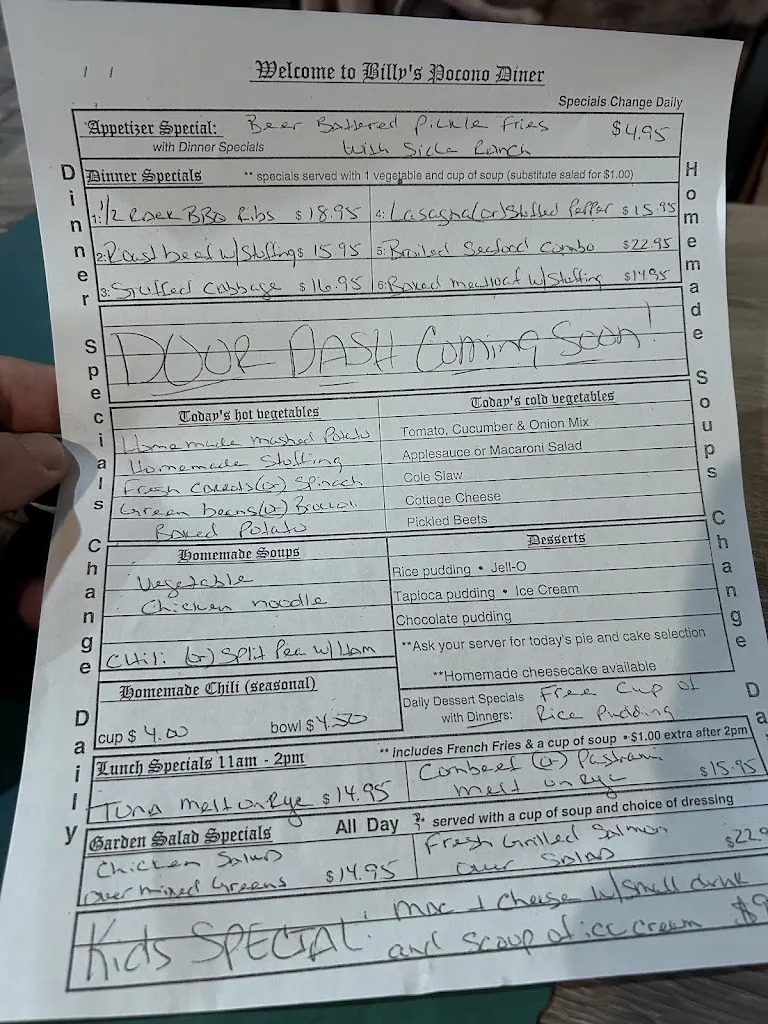 Welcome to Billy's Pocono Diner
Specials Change Daily
Appetizer Special: Beer Battered Pickle Fries $4.95
with Dinner Specials with Side Ranch
Dinner Specials ** specials served with 1 vegetable and cup of soup (substitute salad for $1.00)
1: 1/2 Rack BBQ Ribs $18.95 4: Lasagna (or) Stuffed Pepper $15.95
2: Roast beef w/ Stuffing $15.95 5: Broiled Seafood Combo $22.95
3: Stuffed Cabbage $16.95 6: Baked meatloaf w/ Stuffing $14.95
DOOR DASH Coming Soon!
Today's hot vegetables
Homemade mashed Potato
Homemade Stuffing
Fresh Carrots (or) Spinach
Green beans (or) Broccoli
Baked Potato
Today's cold vegetables
Tomato, Cucumber & Onion Mix
Applesauce or Macaroni Salad
Cole Slaw
Cottage Cheese
Pickled Beets
Homemade Soups
Vegetable
Chicken noodle
Chili (or) Split Pea w/ Ham
Homemade Chili (seasonal)
cup $4.00 bowl $4.50
Desserts
Rice pudding • Jell-O
Tapioca pudding • Ice Cream
Chocolate pudding
**Ask your server for today's pie and cake selection
**Homemade cheesecake available
Daily Dessert Specials Free Cup of
with Dinners: Rice Pudding
Lunch Specials 11am - 2pm ** includes French Fries & a cup of soup • $1.00 extra after 2pm
Tuna melt on Rye $14.95
Cornbeef (or) Pastrami
melt on Rye $15.95
Garden Salad Specials All Day ** served with a cup of soup and choice of dressing
Chicken Salad
over mixed Greens $14.95
Fresh Grilled Salmon
over Salad $22.9
Kids SPECIAL! Mac + Cheese w/ small drink
and scoop of ice cream $9
Dinner Specials Change Daily
Homemade Soups Change Da